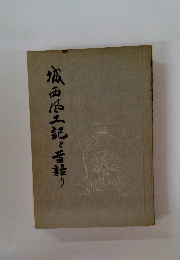 城西風土記と昔語り